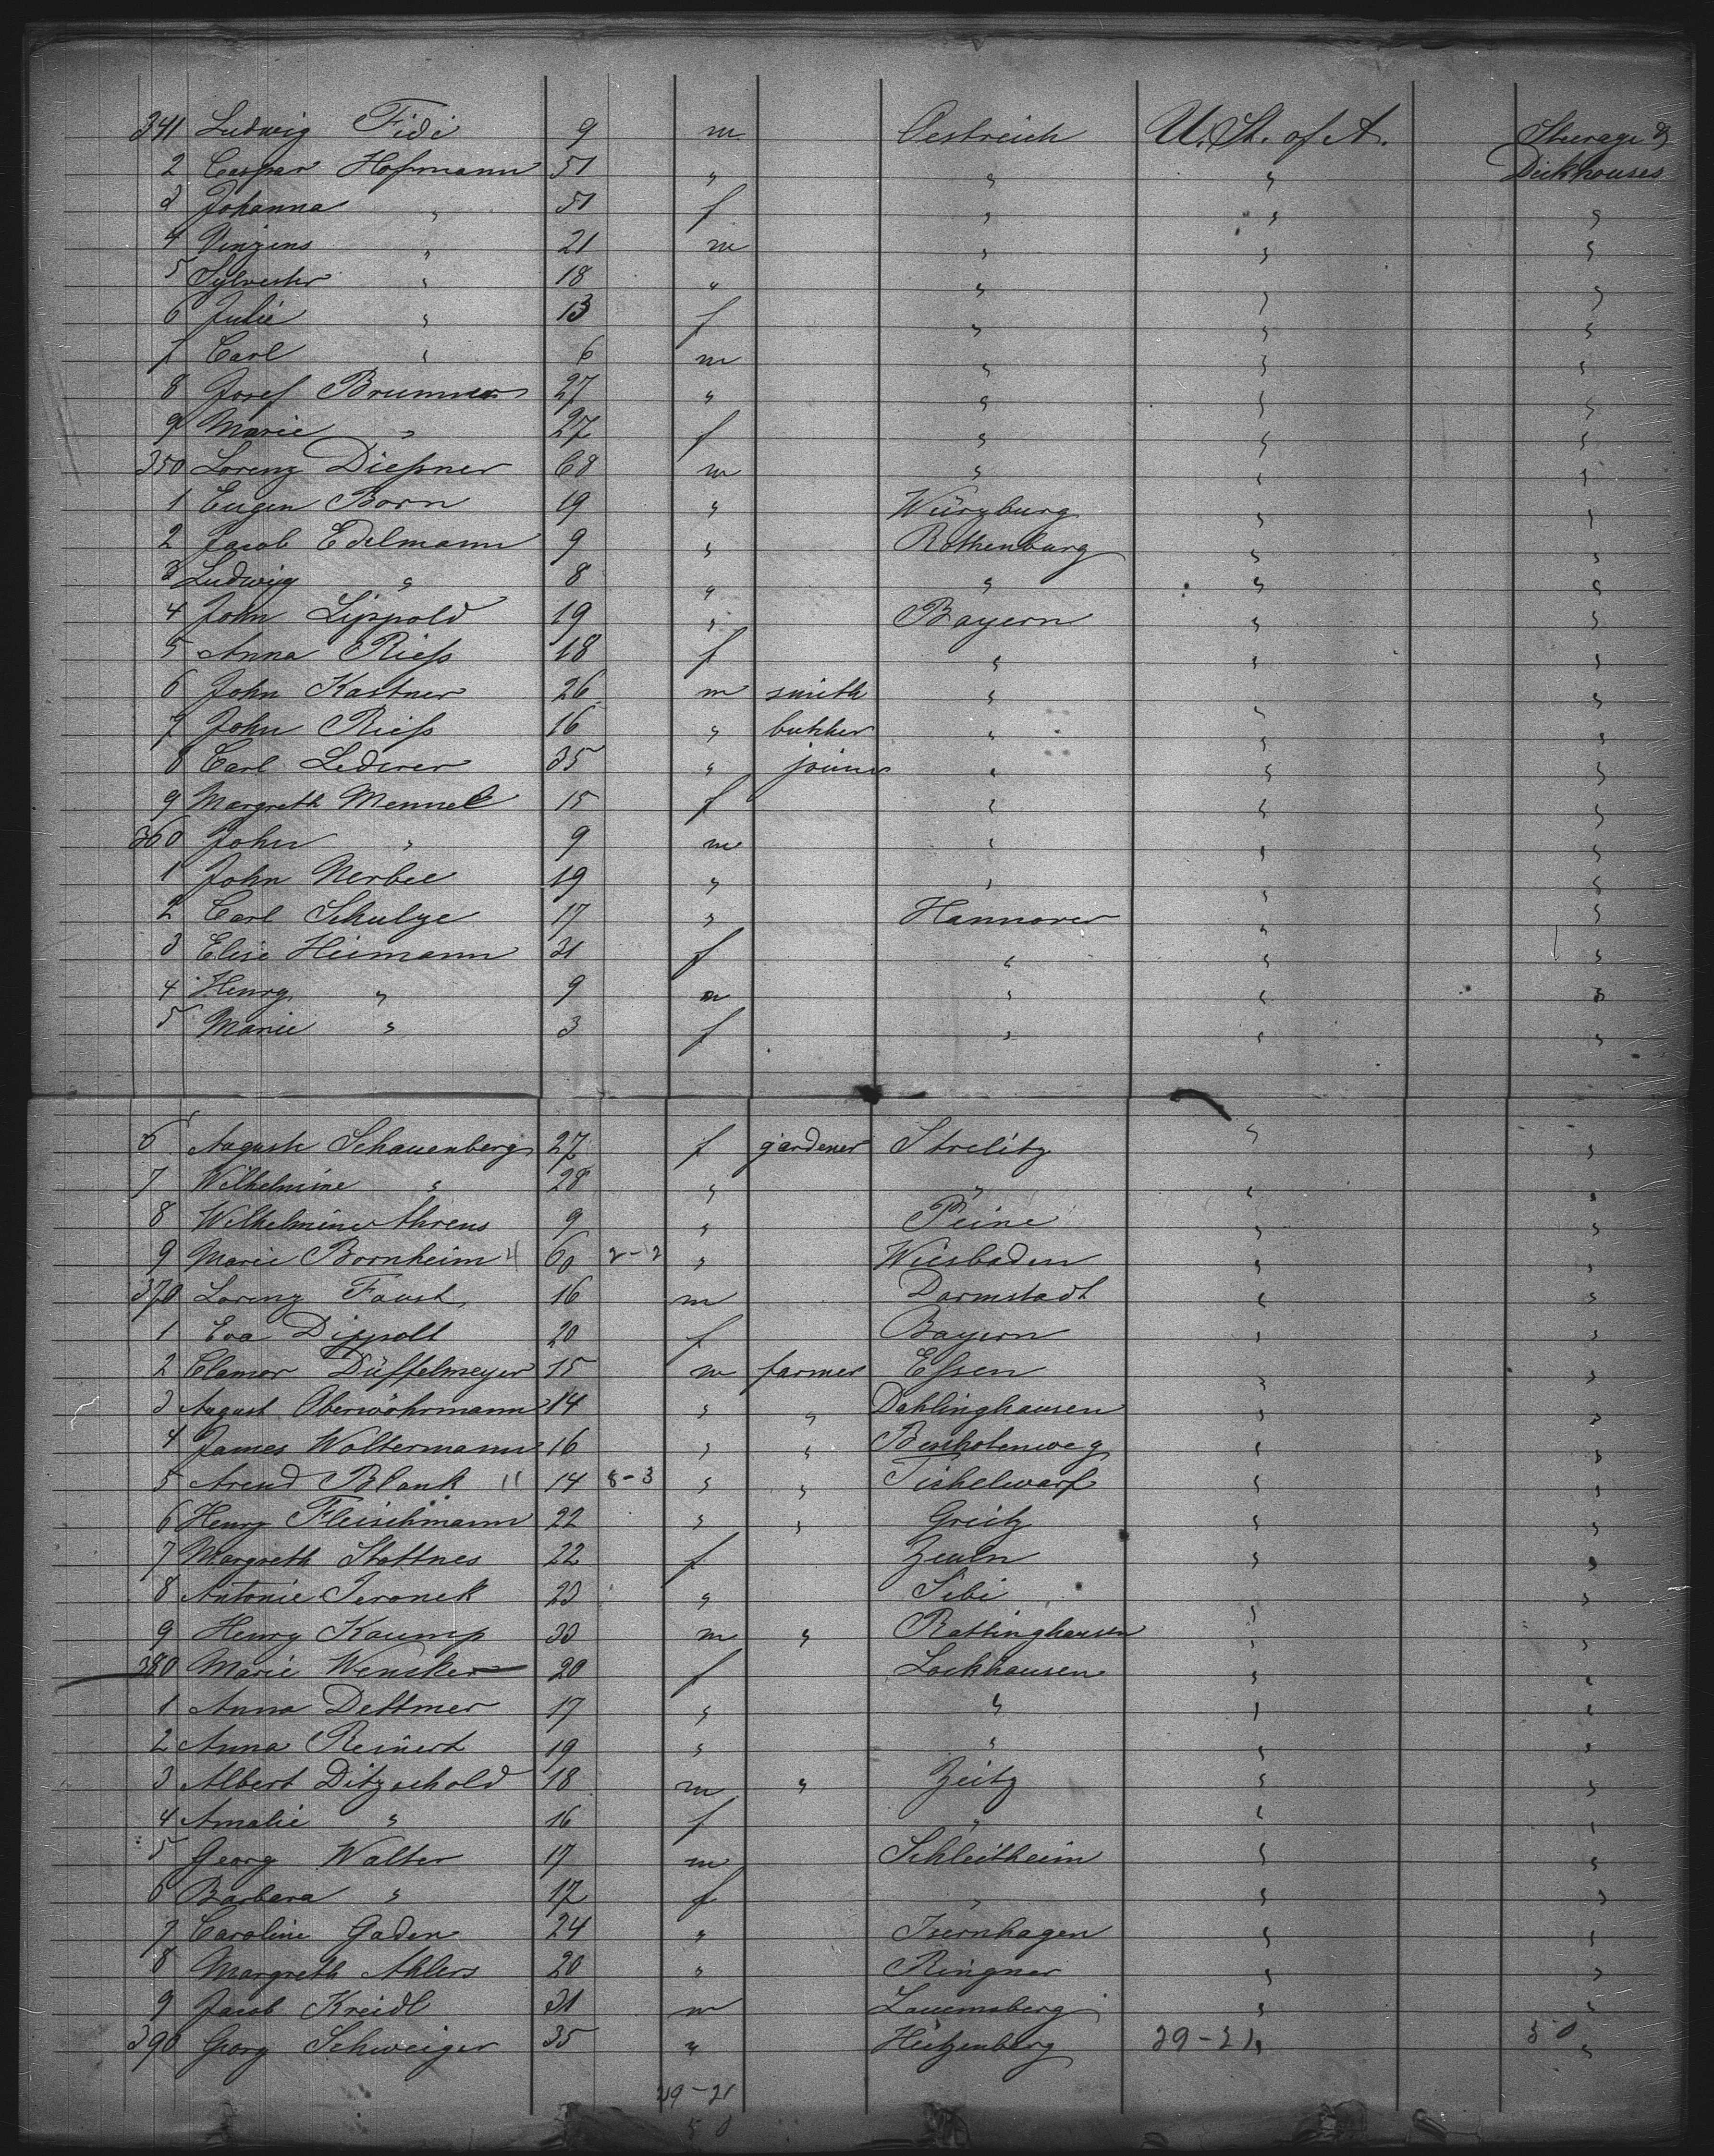 341 Ludwig Fidi 9 m Oestreich U. St. of A. Steerage &
2 Caspar Hofmann 51 " " " Deckhouses
3 Johanna " 51 f " " "
4 Vinzens " 21 m " " "
5 Sylvester " 18 " " " "
6 Julie " 13 f " " "
7 Carl " 6 m " " "
8 Josef Brummer 27 " " " "
9 Marie " 27 f " " "
350 Lorenz Dießner 68 m " " "
1 Eugen Born 19 " Würzburg " "
2 Jacob Edelmann 9 " Rothenburg " "
3 Ludwig " 8 " " " "
4 John Lippold 19 " Bayern " "
5 Anna Rieß 18 f " " "
6 John Kastner 26 m smith " " "
7 John Rieß 16 " butcher " " "
8 Carl Lederer 35 " joiner " " "
9 Margreth Mennel 15 f " " "
360 John " 9 m " " "
1 John Nerbel 19 " " " "
2 Carl Schulze 17 " Hannover " "
3 Elise Heimann 31 f " " "
4 Henry " 9 m " " "
5 Marie " 3 f " " "
6 Auguste Schauenberg 27 f gardener Strelitz " "
7 Wilhelmine " 28 " " " "
8 Wilhelmine Ahrens 9 " Peine " "
9 Marie Bornheim 4 60 2-2 " Wiesbaden " "
370 Lorenz Faust 16 m Darmstadt " "
1 Eva Dippolt 20 f Bayern " "
2 Clamor Düffelmeyer 15 m farmer Essen " "
3 August Oberwöhrmann 14 " " Dahlinghausen " "
4 James Woltermann 16 " " " "
5 Arend Blank 11 14 8-3 " " Tichelwarf " "
6 Henry Fleischmann 22 " " Greitz " "
7 Margreth Stattnes 22 f Zeuln " "
8 Antonie Jeronek 23 " Sebi " "
9 Henry Kaump 33 m " Rattinghausen " "
380 Marie Wensker 20 f Lockhausen " "
1 Anna Dettmer 17 " " " "
2 Anna Reinert 19 " " " "
3 Albert Ditzschold 18 m " Zeitz " "
4 Amalie " 16 f " " "
5 Georg Walter 17 m Schleitheim " "
6 Barbara " 17 f " " "
7 Caroline Gaden 24 " Isernhagen " "
8 Margreth Ahlers 20 " Ringner " "
9 Jacob Kreidl 31 m Lauemsberg " "
390 Georg Schweiger 35 " Hützenberg 29-21 " 50 "
29-21
50